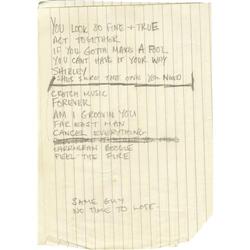 YOU LOOK SO FINE + TRUE
ACT TOGETHER
IF YOU GOTTA MAKE A FOOL
YOU CANT HAVE IT YOUR WAY
SHIRLEY
SHES SURE THE ONE YOU NEED
CROTCH MUSIC
FOREVER
AM I GROOVIN YOU
FAR EAST MAN
CANCEL EVERYTHING
CARRIBEAN BOOGIE
FEEL THE FIRE
SAME GUY
NO TIME TO LOSE.